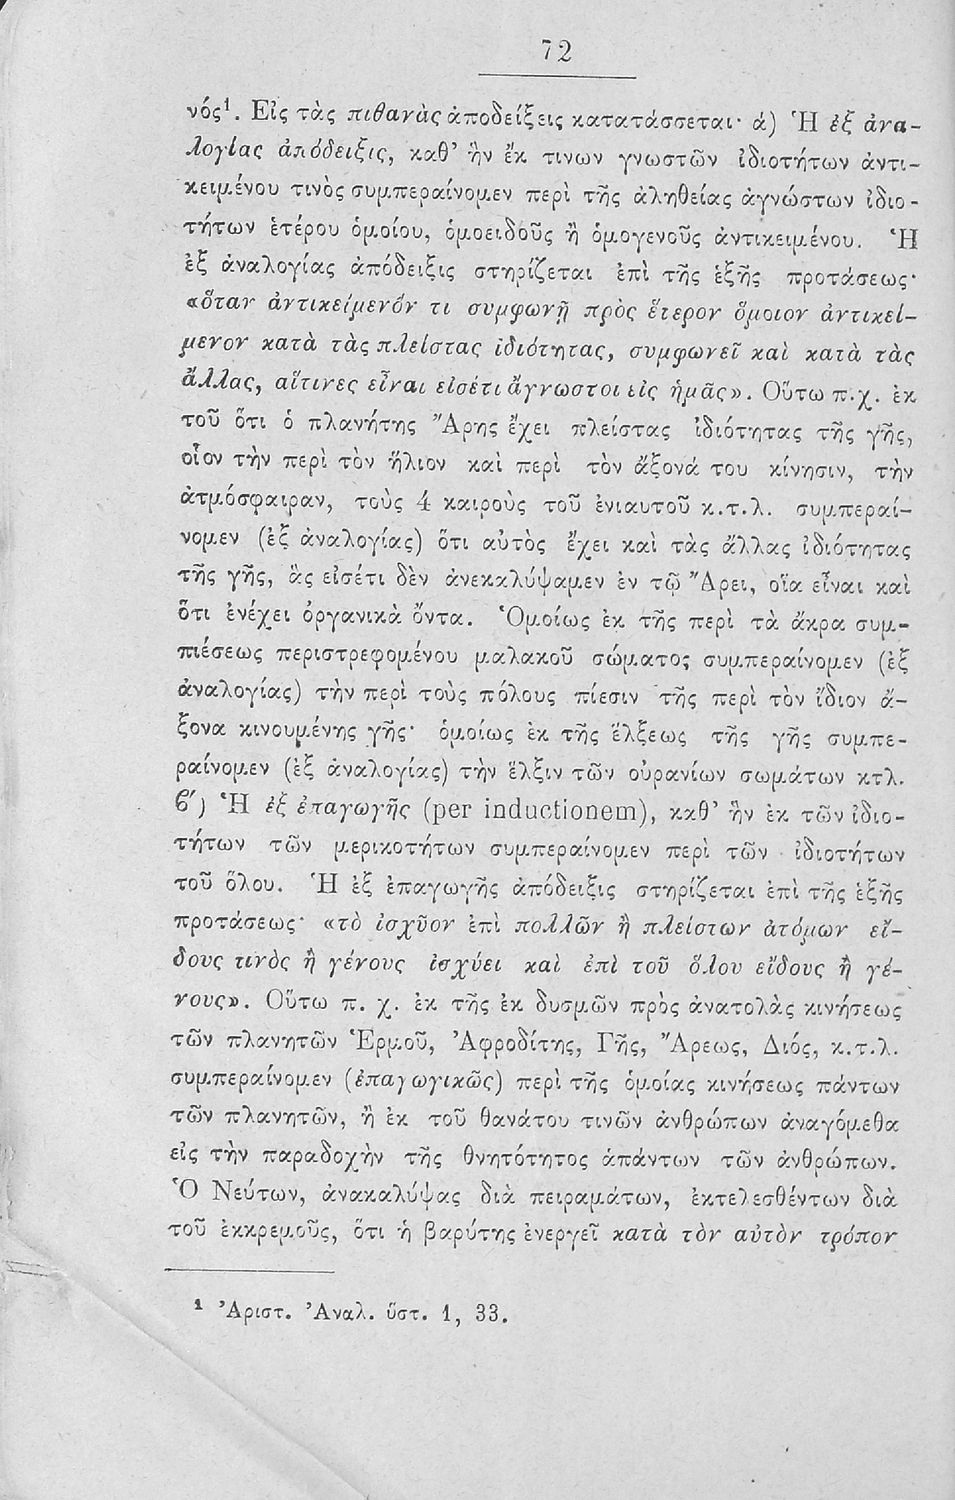 72
νός¹. Εἰς τὰς πιθανὰς ἀποδείξεις κατατάσσεται· ά) Ἡ ἐξ ἀνα-
λογίας ἀπόδειξις, καθ’ ἣν ἔκ τινων γνωστῶν ἰδιοτήτων ἀντι-
κειμένου τινὸς συμπεραίνομεν περὶ τῆς ἀληθείας ἀγνώστων ἰδιο-
τήτων ἑτέρου ὁμοίου, ὁμοειδοῦς ἢ ὁμογενοῦς ἀντικειμένου. Ἡ
ἐξ ἀναλογίας ἀπόδειξις στηρίζεται ἐπὶ τῆς ἑξῆς προτάσεως·
«ὅταν ἀντικείμενόν τι συμφωνῇ πρὸς ἕτερον ὅμοιον ἀντικεί-
μενον κατὰ τὰς πλείστας ἰδιότητας, συμφωνεῖ καὶ κατὰ τὰς
ἄλλας, αἵτινες εἶναι εἰσέτι ἄγνωστοι εἰς ἡμᾶς». Οὕτω π.χ. ἐκ
τοῦ ὅτι ὁ πλανήτης Ἄρης ἔχει πλείστας ἰδιότητας τῆς γῆς,
οἷον τὴν περὶ τὸν ἥλιον καὶ περὶ τὸν ἄξονά του κίνησιν, τὴν
ἀτμόσφαιραν, τοὺς 4 καιροὺς τοῦ ἐνιαυτοῦ κ.τ.λ. συμπεραί-
νομεν (ἐξ ἀναλογίας) ὅτι αὐτὸς ἔχει καὶ τὰς ἄλλας ἰδιότητας
τῆς γῆς, ἃς εἰσέτι δὲν ἀνεκαλύψαμεν ἐν τῷ Ἄρει, οἵα εἶναι καὶ
ὅτι ἐνέχει ὀργανικὰ ὄντα. Ὁμοίως ἐκ τῆς περὶ τὰ ἄκρα συμ-
πιέσεως περιστρεφομένου μαλακοῦ σώματος συμπεραίνομεν (ἐξ
ἀναλογίας) τὴν περὶ τοὺς πόλους πίεσιν τῆς περὶ τὸν ἴδιον ἄ-
ξονα κινουμένης γῆς· ὁμοίως ἐκ τῆς ἕλξεως τῆς γῆς συμπε-
ραίνομεν (ἐξ ἀναλογίας) τὴν ἕλξιν τῶν οὐρανίων σωμάτων κτλ.
ϐ′) Ἡ ἐξ ἐπαγωγῆς (per inductionem), καθ’ ἣν ἐκ τῶν ἰδιο-
τήτων τῶν μερικοτήτων συμπεραίνομεν περὶ τῶν ἰδιοτήτων
τοῦ ὅλου. Ἡ ἐξ ἐπαγωγῆς ἀπόδειξις στηρίζεται ἐπὶ τῆς ἑξῆς
προτάσεως· «τὸ ἰσχῦον ἐπὶ πολλῶν ἢ πλείστων ἀτόμων εἴ-
δους τινὸς ἢ γένους ἰσχύει καὶ ἐπὶ τοῦ ὅλου εἴδους ἢ γέ-
νους». Οὕτω π. χ. ἐκ τῆς ἐκ δυσμῶν πρὸς ἀνατολὰς κινήσεως
τῶν πλανητῶν Ἑρμοῦ, Ἀφροδίτης, Γῆς, Ἄρεως, Διός, κ.τ.λ.
συμπεραίνομεν (ἐπαγωγικῶς) περὶ τῆς ὁμοίας κινήσεως πάντων
τῶν πλανητῶν, ἢ ἐκ τοῦ θανάτου τινῶν ἀνθρώπων ἀναγόμεθα
εἰς τὴν παραδοχὴν τῆς θνητότητος ἁπάντων τῶν ἀνθρώπων.
Ὁ Νεύτων, ἀνακαλύψας διὰ πειραμάτων, ἐκτελεσθέντων διὰ
τοῦ ἐκκρεμοῦς, ὅτι ἡ βαρύτης ἐνεργεῖ κατὰ τὸν αὐτὸν τρόπον
¹ Ἀριστ. Ἀναλ. ὕστ. 1, 33.